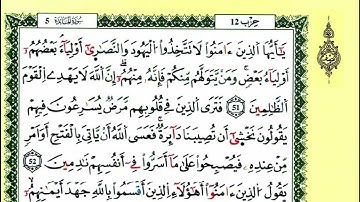 سُورَةُ الْمَائِدَة 5 حِزْب 12
يَٰٓأَيُّهَا الَّذِينَ ءَامَنُوا لَا تَتَّخِذُوا الْيَهُودَ وَالنَّصَٰرَىٰٓ أَوْلِيَآءَ بَعْضُهُمُۥٓ
أَوْلِيَآءُ بَعْضٍ وَمَنْ يَتَوَلَّهُم مِّنكُمْ فَإِنَّهُۥ مِنْهُمُۥٓ إِنَّ اللَّهَ لَا يَهْدِے الْقَوْمَ
الظَّٰلِمِينَ 51 فَتَرَى الَّذِينَ فِے قُلُوبِهِم مَّرَضٌ يُسَٰرِعُونَ فِيهِمْ
يَقُولُونَ نَخْشَىٰٓ أَن تُصِيبَنَا دَآئِرَةٌ فَعَسَى اللَّهُ أَنْ يَّاتِيَ بِالْفَتْحِ أَوَ اَمْرٍ
مِّنْ عِندِهِۦ فَيُصْبِحُوا عَلَىٰ مَآ أَسَرُّوا فِےٓ أَنفُسِهِمْ نَٰدِمِينَ 52
يَقُولُ الَّذِينَ ءَامَنُوٓا أَهَٰٓؤُلَآءِ الَّذِينَ أَقْسَمُوا بِاللَّهِ جَهْدَ أَيْمَٰنِهِمُۥٓ